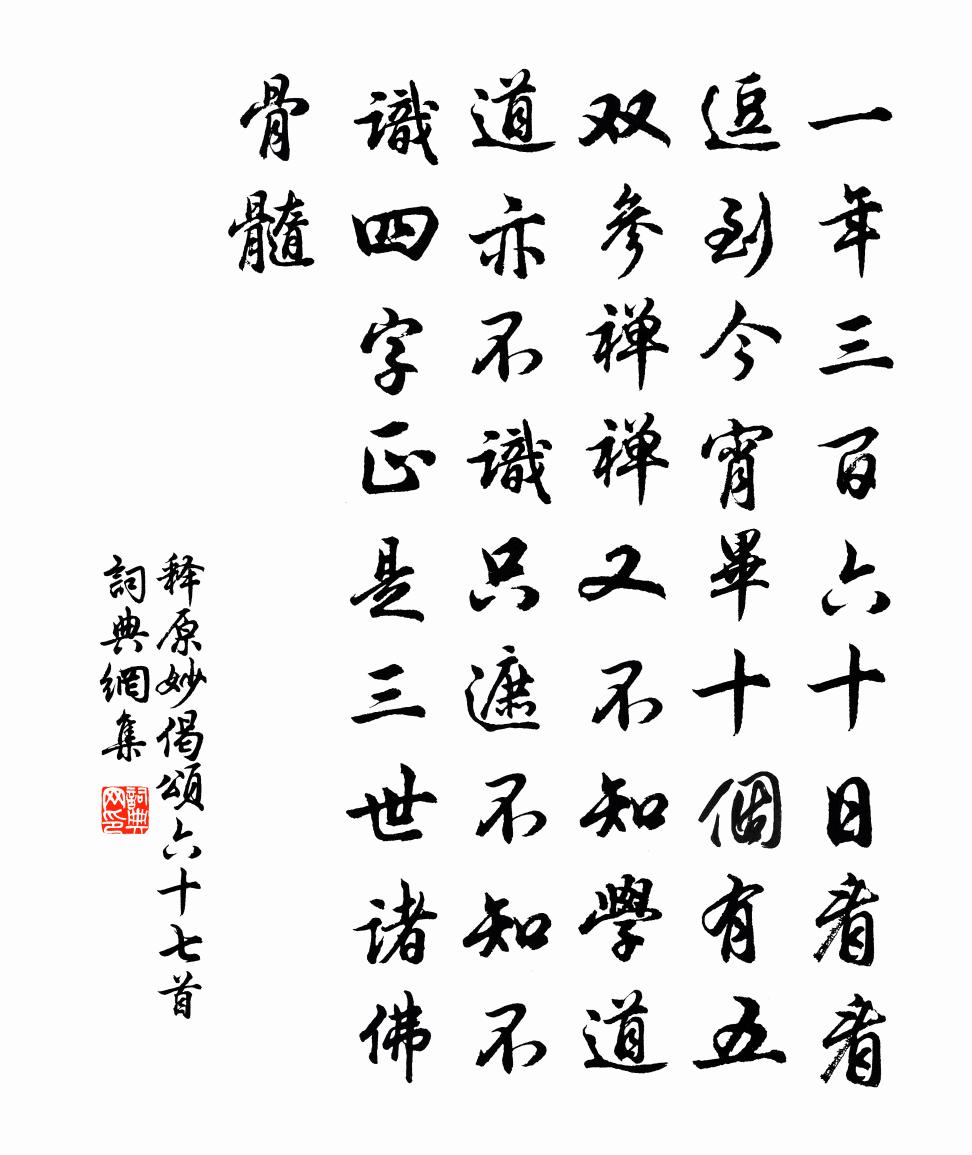 一年三百六十日看看
逗到今宵畢十個有五
双參禅禅又不知學道
道亦不識只遮不知不
識四字正是三世諸佛
骨髓
释原妙偈頌六十七首
詞典網集
詞典网印